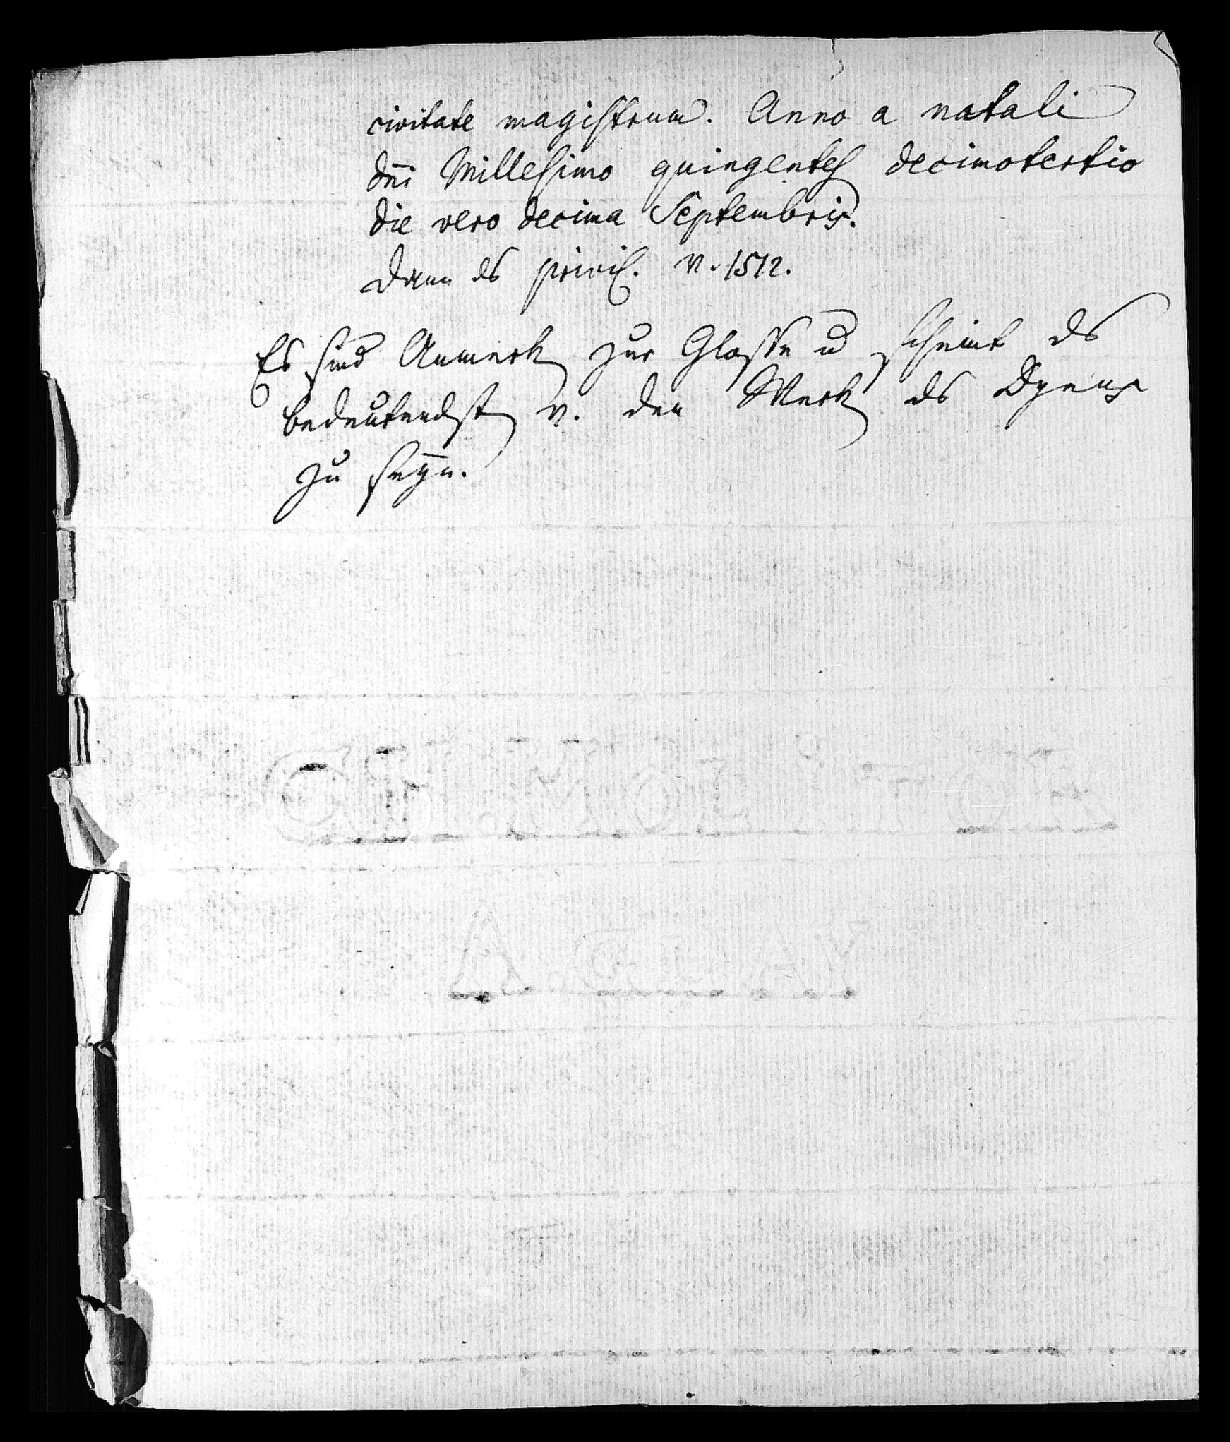 civitate magistrum. Anno a natali
dni Millesimo quingentes decimotertio
die vero decima Septembris.
Dann ds privil. v. 1512.
Es sind Anmerk zur Glosse u scheint ds
bedeutendst v. den Werk ds Dynus
zu seyn.